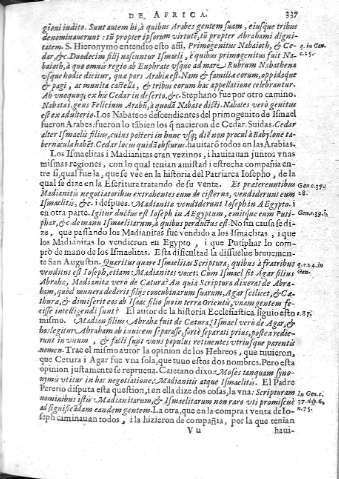 DE AFRICA. 337
gioni indite. Sunt autem bi, à quibus Arabes gentem suam, eiusque tribus
denominauerunt: tū propter ipsorum virtutē, tū propter Abrahami digni-
tatem. S. Hieronymo entendio esto assi, Primogenitus Nabaioth, & Ce- q. in Gen.
dar, &c. Duodecim filij nascuntur Ismaeli, è quibus primogenitus fuit Na- c.25.
baioth, à quo omnis regio ab Euphrate vsque ad mare Rubrum Nabathena
vsque hodie dicitur, quæ pars Arabiæ est. Nam & familiæ eorum, oppidaque
& pagi, ac munita castella, & tribus eorum hac appellatione celebrantur.
Ab vno quoq; ex his Cedar in deserto, &c. Stephano fue por otro camino.
Nabatæi gens Felicium Arabū, à quodā Nabate dicti. Nabates verò genitus
est ex adulterio. Los Nabateos descendientes del primogenito de Ismael
fueron Arabes: fueron lo tābien los q̃ nacieron de Cedar. Suidas. Cedar
alter Ismaelis filius, cuius posteri in hunc vsq; diē non procul à Babylone ta-
bernacula habēt. Cedar locus quidā obscurus. hauitarō todos en las Arabias.
Los Ismaelitas i Madianitas eran vezinos, i hauitauan juntos vnas
mismas regiones, con lo qual tenian amistad i estrecha compañia en-
tre si, qual fue la, que se vee en la historia del Patriarca Iosepho, de la
qual se dize en la Escritura tratando de su venta. Et prætereuntibus Gen. c.37.
Madianitis negotiatoribus extrahentes eum de cisterna, vendiderunt eum 28.
Ismaelitis, &c. i despues. Madianitæ vendiderunt Ioseph in AEgypto. i
en otra parte. Igitur ductus est Ioseph in AEgyptum, emitque eum Puti- Gen. 39.
phar, &c de manu Ismaelitarum, à quibus perductus est. No sin causa se di-
ze, que passando los Madianitas fue vendido a los Ismaelitas, i que
los Madianitas lo vendieron en Egypto, i que Putiphar lo com-
prò de mano de los Ismaelitas. Esta dificultad la dissuelue breuemen-
te San Augustin. Quæritur quare Ismaelitas Scriptura, quibus à fratribus q.124. in
venditus est Ioseph, etiam Madianitas vocet. Cum Ismael sit Agar filius Gen.
Abrahæ, Madianitæ verò de Cetura? An quia Scriptura dixerat de Abra-
ham, quòd munera dederit filijs concubinarum suarum, Agar scilicet, & Ce-
turæ, & dimiserit eos ab Isaac filio suo in terra Orientis, vnam gentem fe-
cisse intelligendi sunt? El autor de la historia Ecclesiastica siguio esto c.87.
mismo. Madian filius Abrahæ fuit de Cetura, Ismael verò de Agar, &
hos legitur, Abraham ab vxorem sparsisse fortè separati prius, postea redie-
runt in vnum, & facti sunt vnus populus retinentes vtriusque parentis
nomen. Trae el mismo autor la opinion de los Hebreos, que quisieron,
que Cetura i Agar fue vna sola, que tuuo estos dos nombres. Pero esta
opinion justamente se reprueua. Caietano dixo. Moses tanquam syno-
nymis vtitur in hac negotiatione, Madianitis atque Ismaelitis. El Padre
Pererio disputa esta question, i en ella dize dos cosas, la vna: Scripturam In Gen. c.
nominibus istis Madianitarum, & Ismaelitarum non raro vti promiscuè 37. disp. 6.
ad significādam eandem gentem. La otra, que en la compra i venta de Io- n.75.
seph caminauan todos, i la hizieron de compañia, por la que tenian
Vu haui-